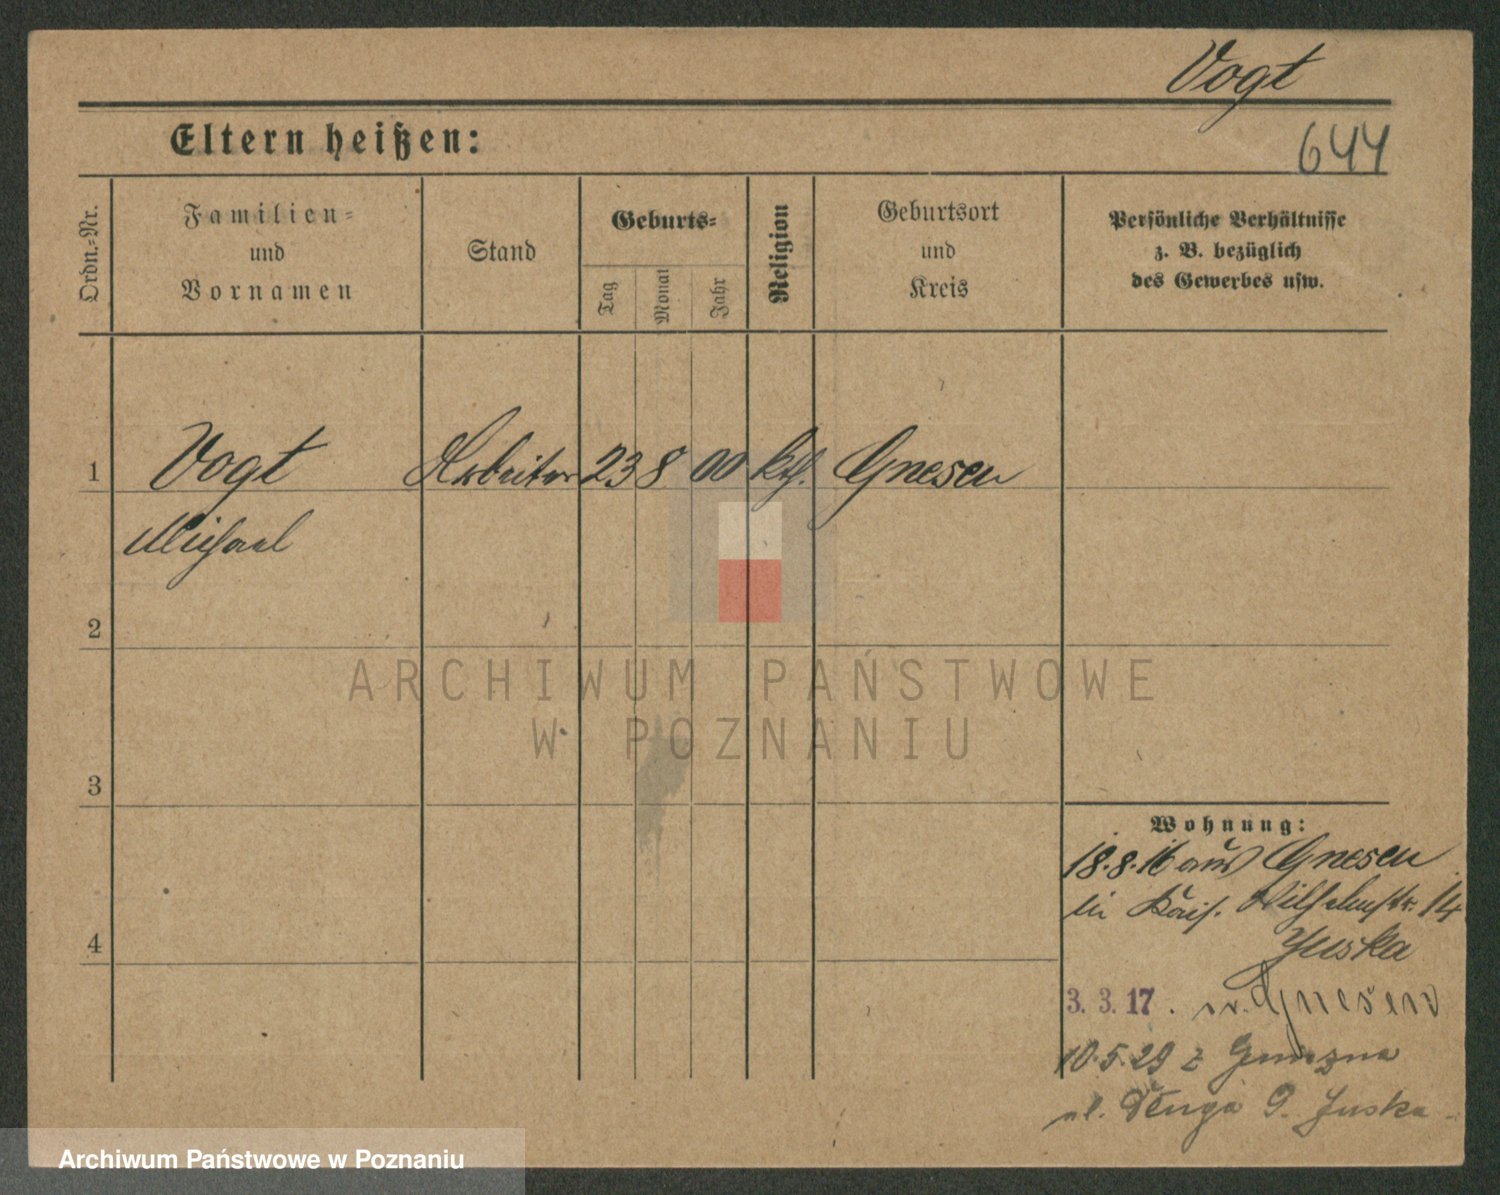 Vogt
644
Eltern heißen:
Ordn.=Nr.
Familien=
und
Vornamen
Stand
Geburts=
Tag
Monat
Jahr
Religion
Geburtsort
und
Kreis
Persönliche Verhältnisse
z. B. bezüglich
des Gewerbes usw.
1 Vogt Arbeiter 23 8 00 kth. Gnesen
Michael
2
ARCHIWUM PAŃSTWOWE
W POZNANIU
3
Wohnung:
18.8.16 aus Gnesen
in Kais. Wilhelmstr. 14
Juska
4
3. 3. 17. n. Gnesen
10.5.29 z Gniezna
ul. Długa 9. Juska
Archiwum Państwowe w Poznaniu